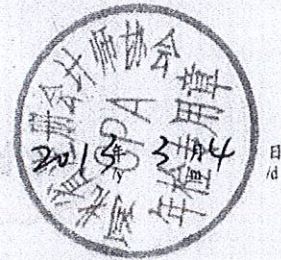 注册会计师协会
CPA
年检专用章
2013年3月4日
/d